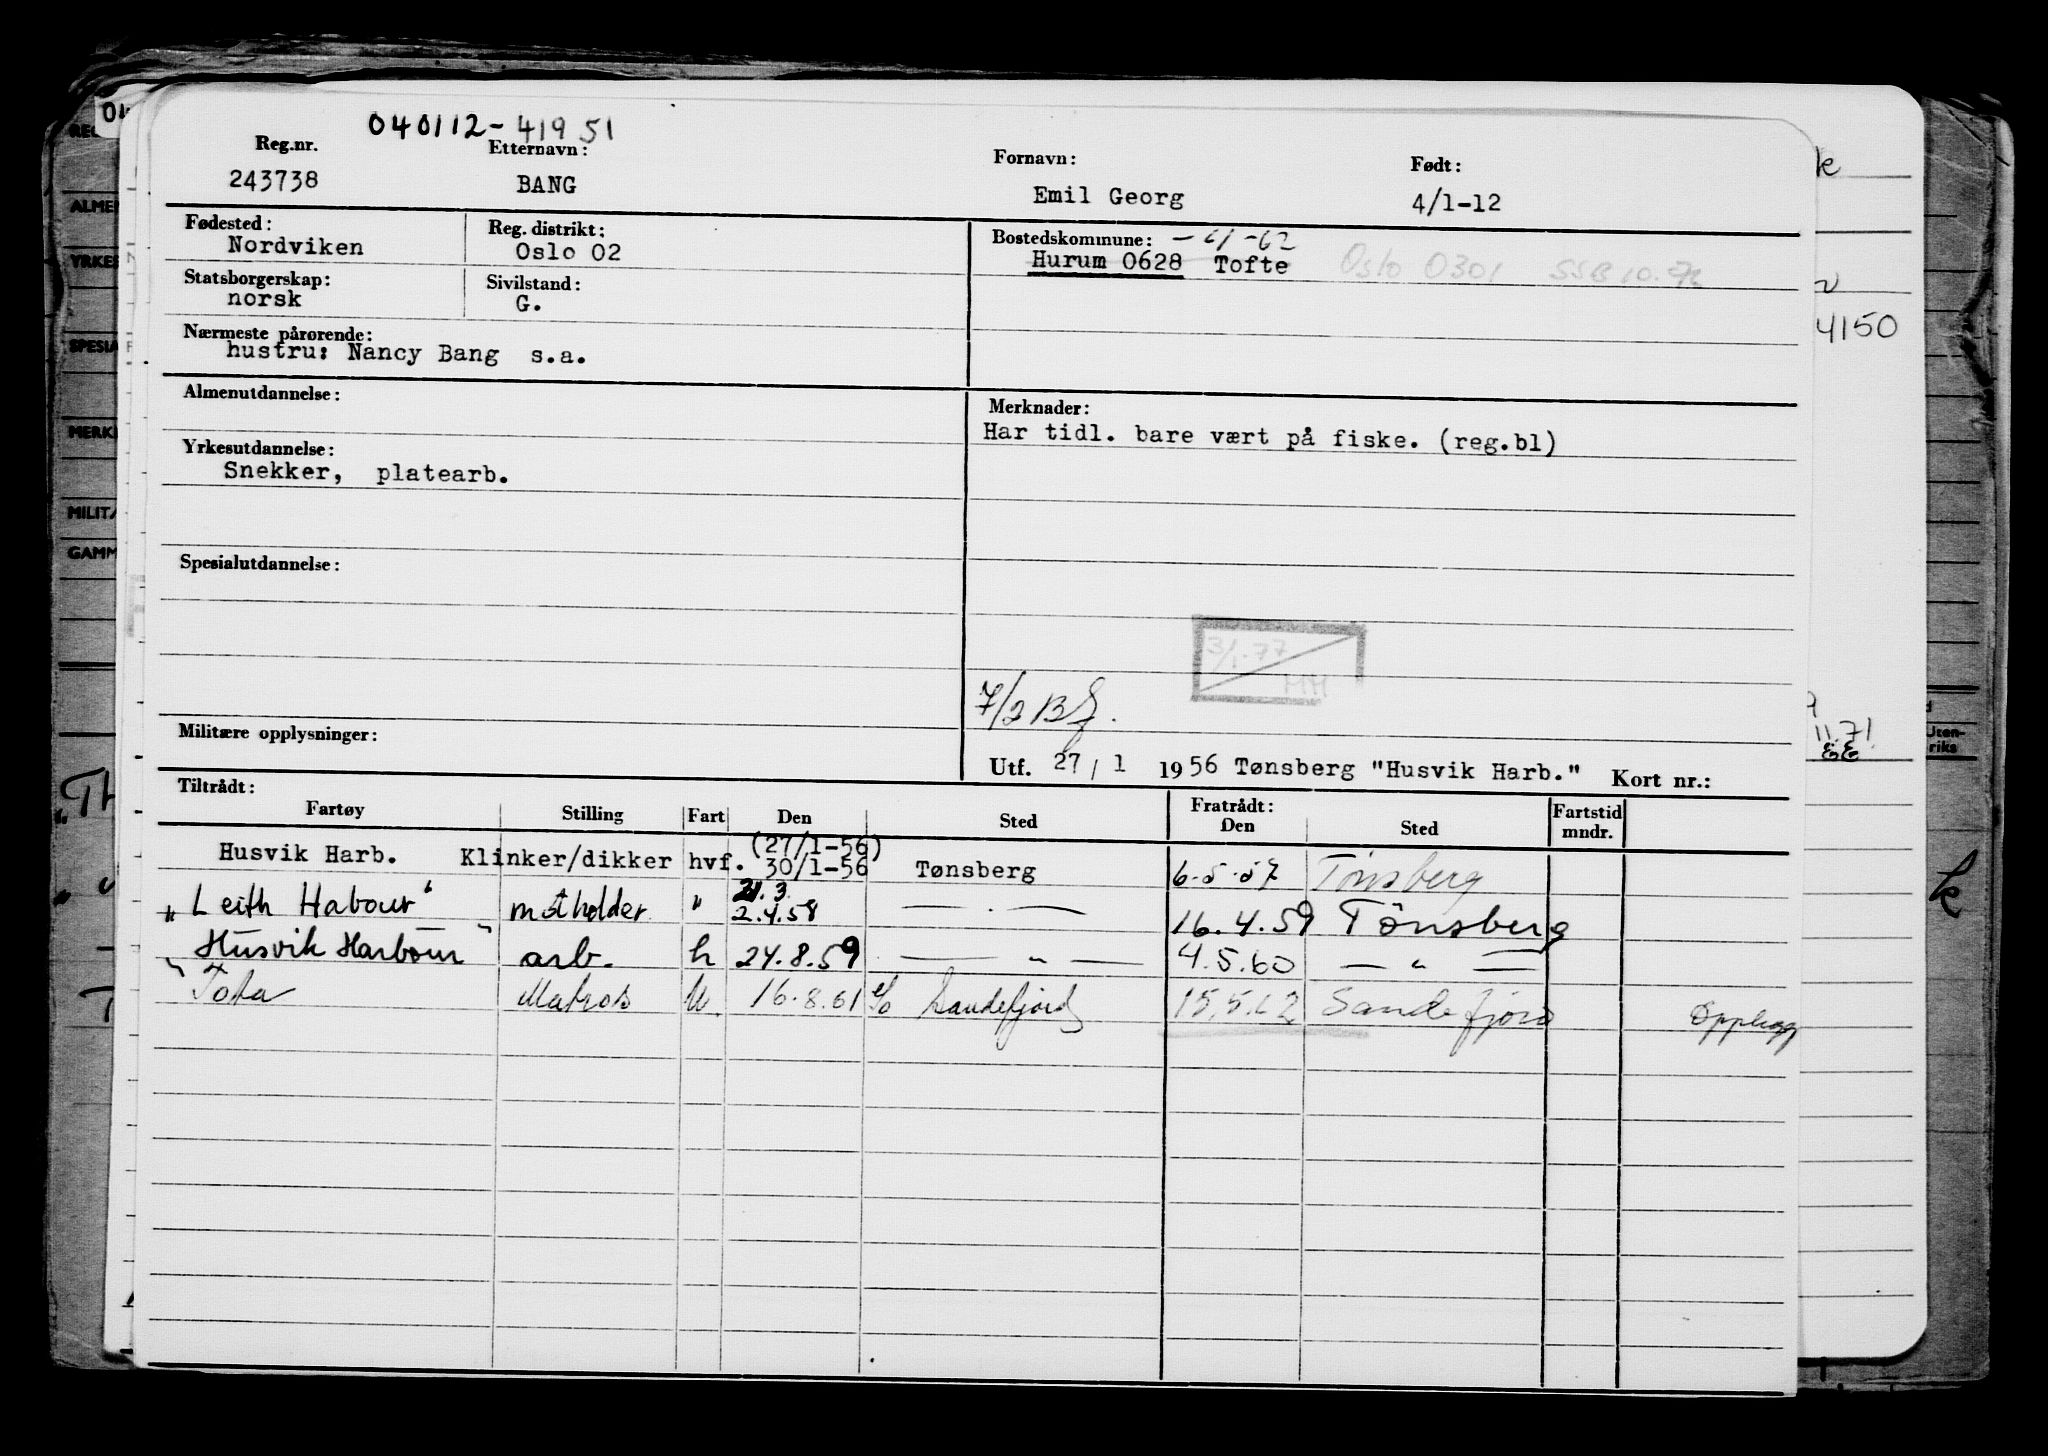 040112-41951
Reg.nr. Etternavn: Fornavn: Født:
243738 BANG Emil Georg 4/1-12
Fødested: Reg. distrikt: Bostedskommune:
Nordviken Oslo 02 Hurum 0628 Tofte Oslo 0301 SSB 10.
Statsborgerskap: Sivilstand:
norsk G.
Nærmeste pårørende:
hustru: Nancy Bang s.a.
4150
Almenutdannelse: Merknader:
Har tidl. bare vært på fiske. (reg.bl)
Yrkesutdannelse:
Snekker, platearb.
Spesialutdannelse:
3/1-77
MH
7/2
Militære opplysninger:
11.71
Utf. 27/1 1956 Tønsberg "Husvik Harb." Kort nr.:
Tiltrådt: Fratrådt: Fartstid
Fartøy Stilling Fart Den Sted Den Sted mndr.
(27/1-56)
Husvik Harb. Klinker/dikker hvf. 30/1-56 Tønsberg 6.5.57 Tønsberg
"Leith Habour" " 2.4.58 — . — 16.4.59 Tönsberg
"Husvik Harbour" arb. h 24.8.59 — " — 4.5.60 — " —
Tota Matros U 16.8.61 Sandefjord 15.5.62 Sandefjord Opplegg